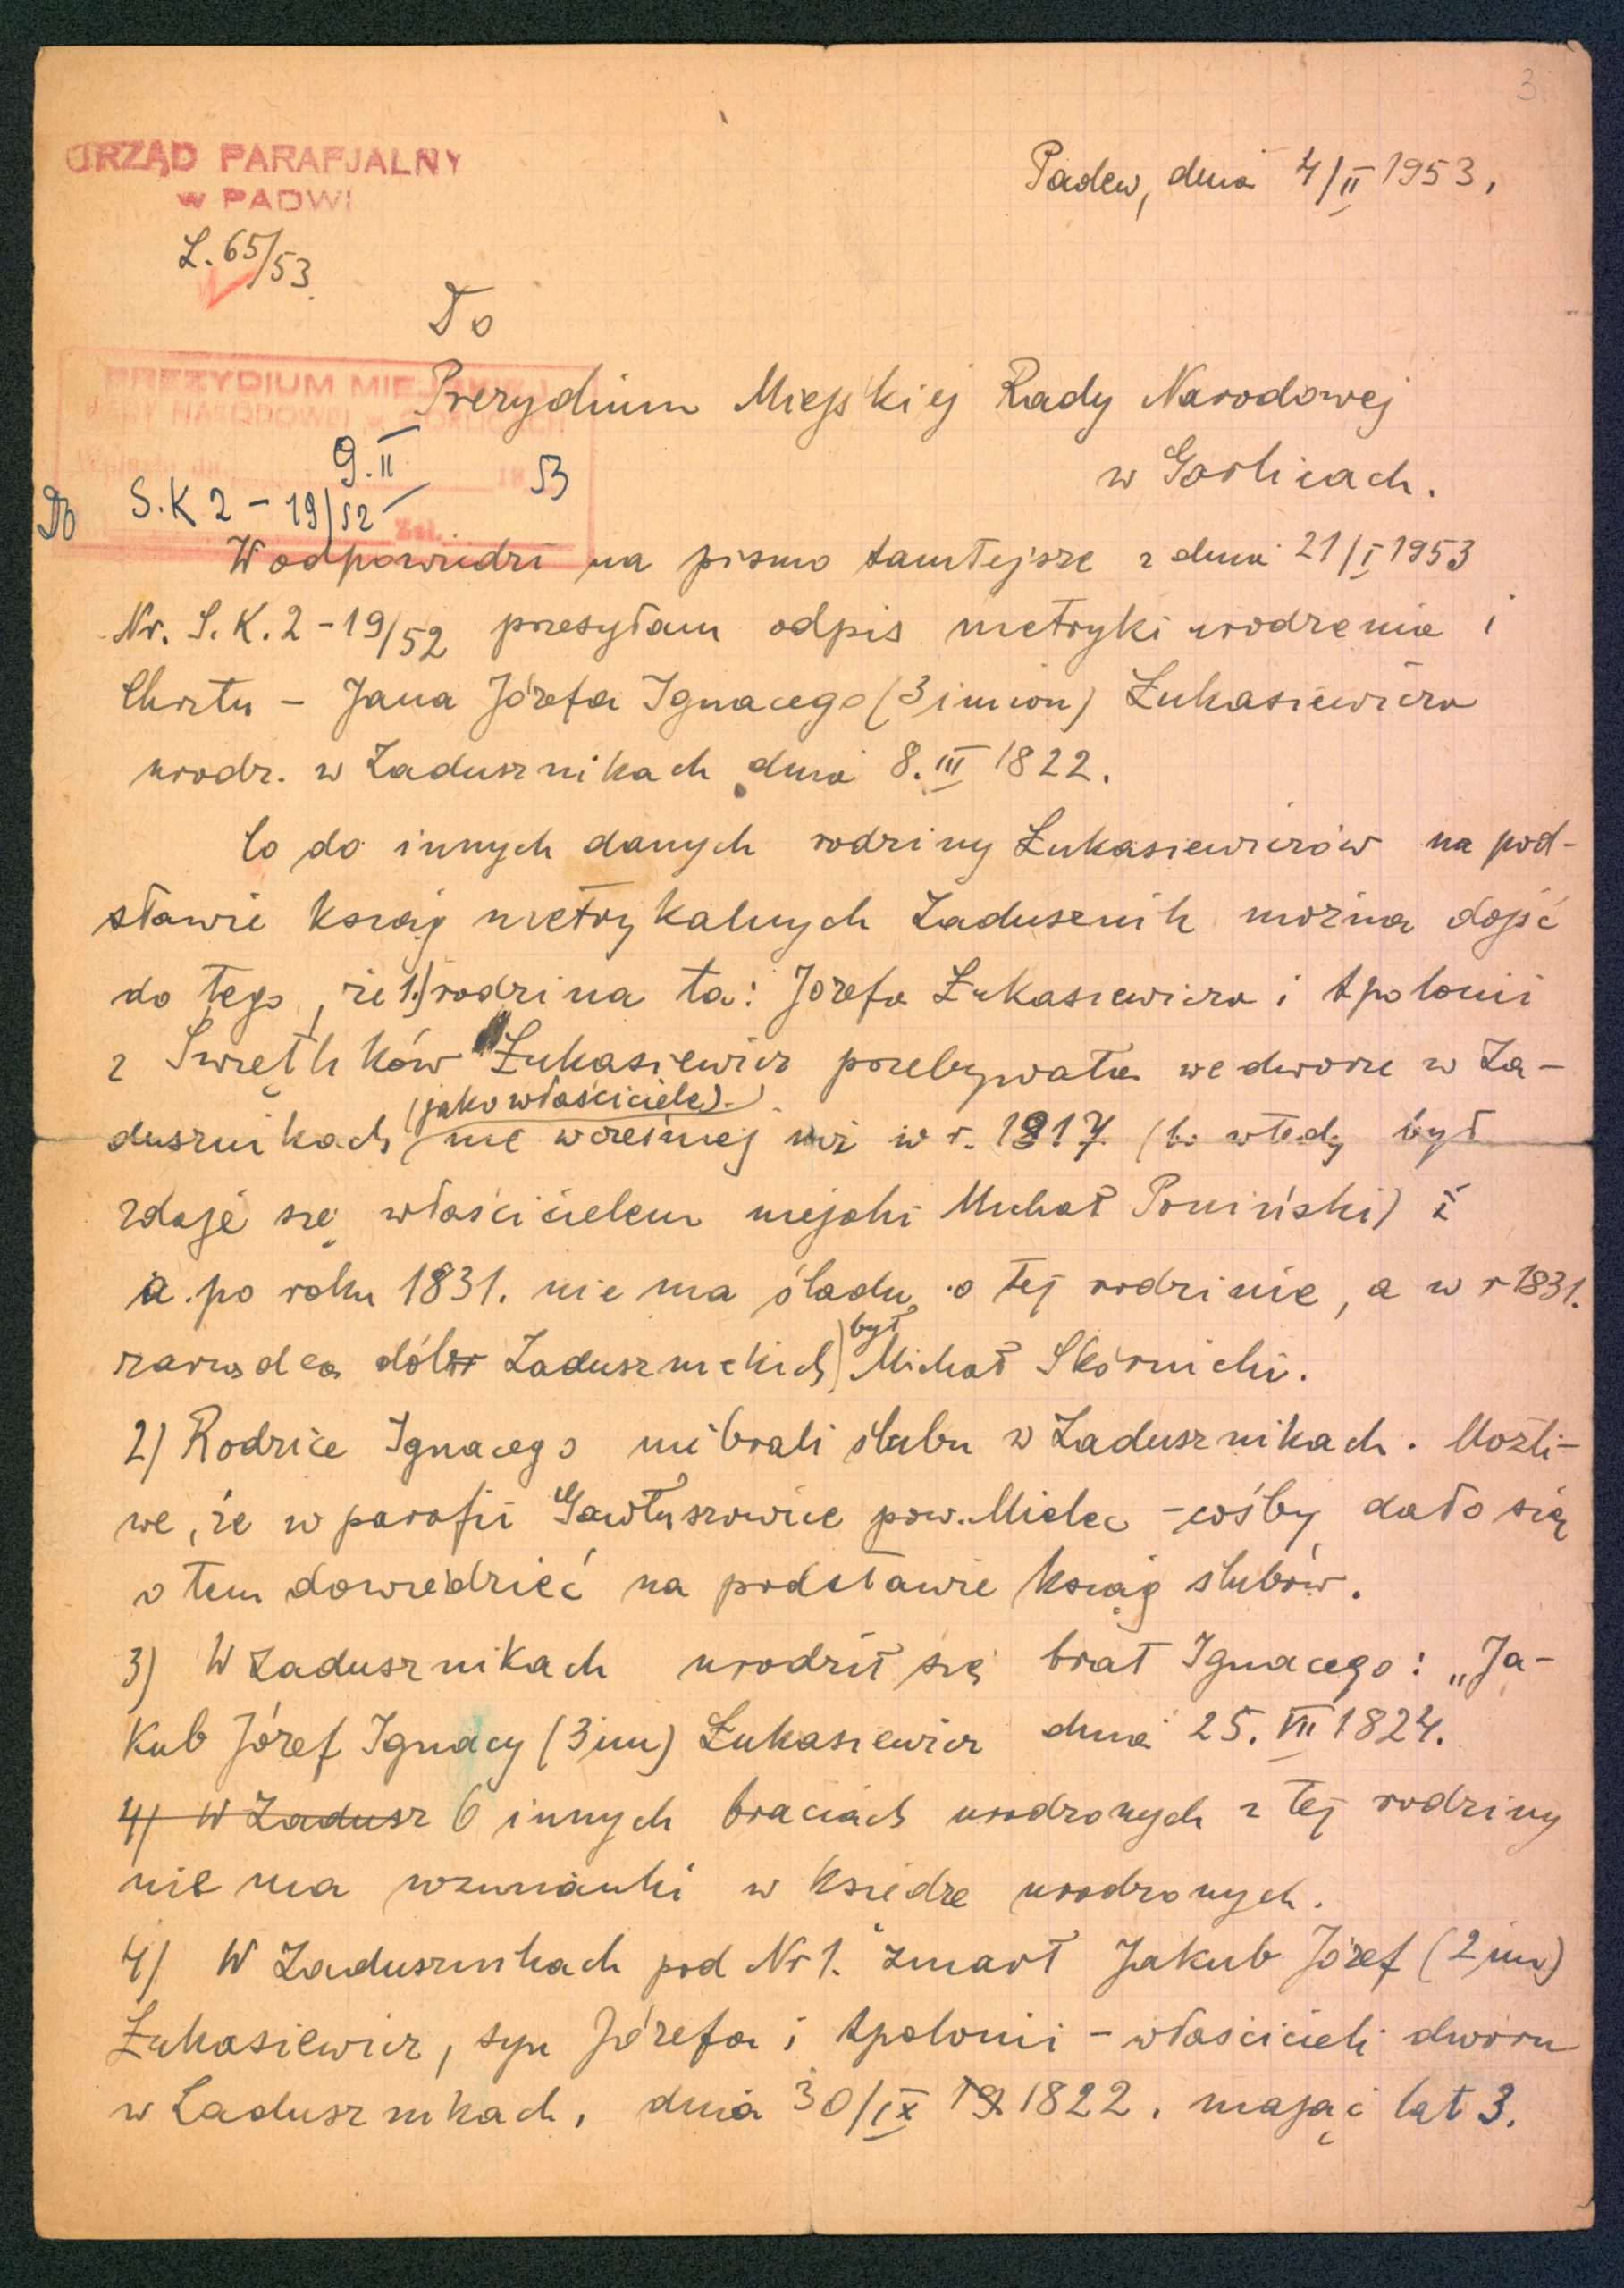 3.
URZĄD PARAFJALNY
w PADWI
L. 65/53.
Padew, dnia 4/II 1953.
Do
PREZYDIUM MIEJSKIEJ
RADY NARODOWEJ w GORLICACH
Prezydium Miejskiej Rady Narodowej
w Gorlicach.
9.II 19 53
Do S.K 2 - 19/52
Zał.
W odpowiedzi na pismo tamtejsze z dnia 21/I 1953
Nr. S. K. 2 - 19/52 przesyłam odpis metryki urodzenia i
Chrztu – Jana Józefa Ignacego (3 imion) Łukasiewicza
urodz. w Zadusznikach dnia 8. III 1822.
Co do innych danych rodziny Łukasiewiczów na pod-
stawie ksiąg metrykalnych Zadusznik można dojść
do tego, że 1.) rodzina ta: Józefa Łukasiewicza i Apolonii
z Świętlików Łukasiewicz przebywała we dworze w Za-
(jako właściciele).
dusznikach nie wcześniej niż w r. 1817. (bo wtedy był
zdaje się właścicielem niejaki Michał Poniński) i
a po roku 1831. nie ma śladu o tej rodzinie, a w r 1831.
zarządcą dóbr Zadusznickich był Michał Skórnicki.
2) Rodzice Ignacego nie brali ślubu w Zadusznikach. Możli-
we, że w parafii Gawłuszowice pow. Mielec – cośby dało się
o tem dowiedzieć na podstawie ksiąg ślubów.
3) W Zadusznikach urodził się brat Ignacego: „Ja-
kub Józef Ignacy (3 im) Łukasiewicz dnia 25. VII 1824.
4) W Zadusz O innych braciach urodzonych z tej rodziny
nie ma wzmianki w księdze urodzonych.
4) W Zadusznikach pod Nr 1. zmarł Jakub Józef (2 im)
Łukasiewicz, syn Józefa i Apolonii – właścicieli dworu
w Zadusznikach, dnia 30/IX 1822. mając lat 3.